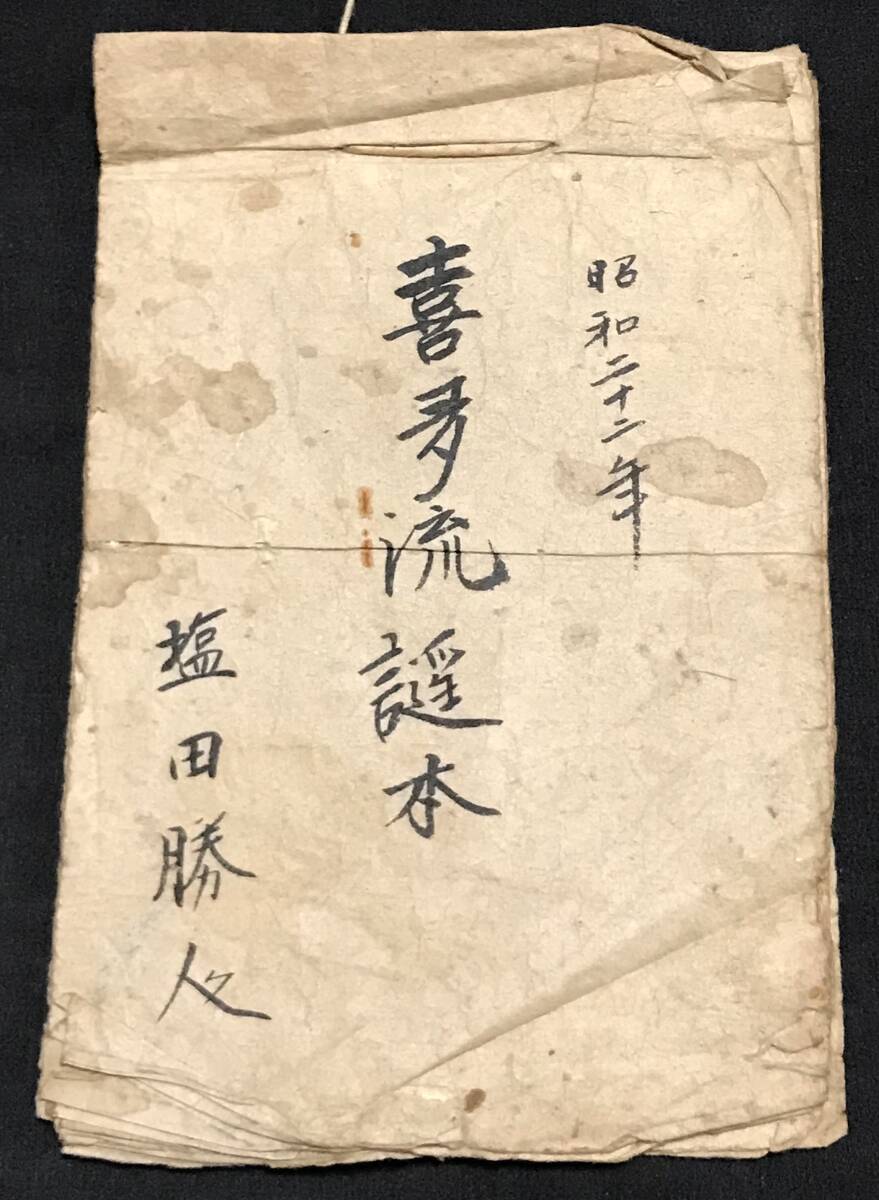 昭和二十二年
喜多流謡本
塩田勝人